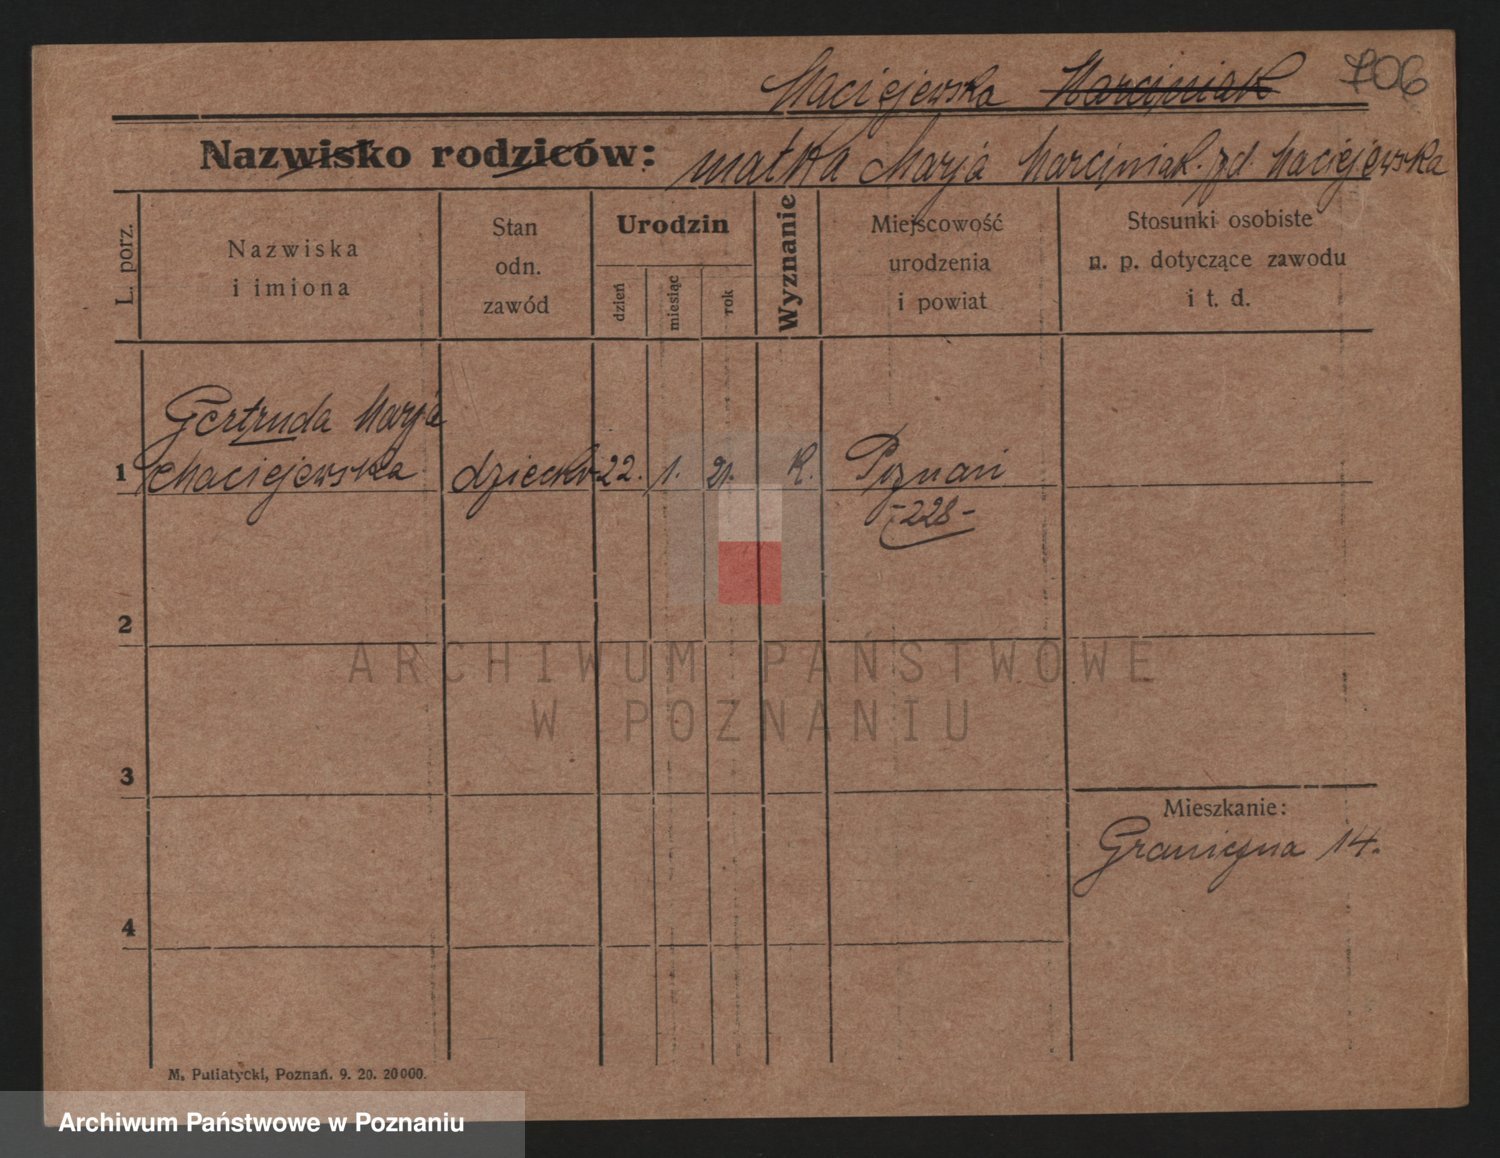 Maciejewska Marciniak 706
Nazwisko rodziców: matka Marja Marciniak zd. Maciejewska
L. porz.
Nazwiska
i imiona
Stan
odn.
zawód
Urodzin
dzień
miesiąc
rok
Wyznanie
Miejscowość
urodzenia
i powiat
Stosunki osobiste
n. p. dotyczące zawodu
i t. d.
Gertruda Marja
1 Maciejewska dziecko 22. 1. 21. K. Poznań
-228-
2
ARCHIWUM PAŃSTWOWE
W POZNANIU
3
Mieszkanie:
Graniczna 14.
4
M. Putiatycki, Poznań. 9. 20. 20000.
Archiwum Państwowe w Poznaniu